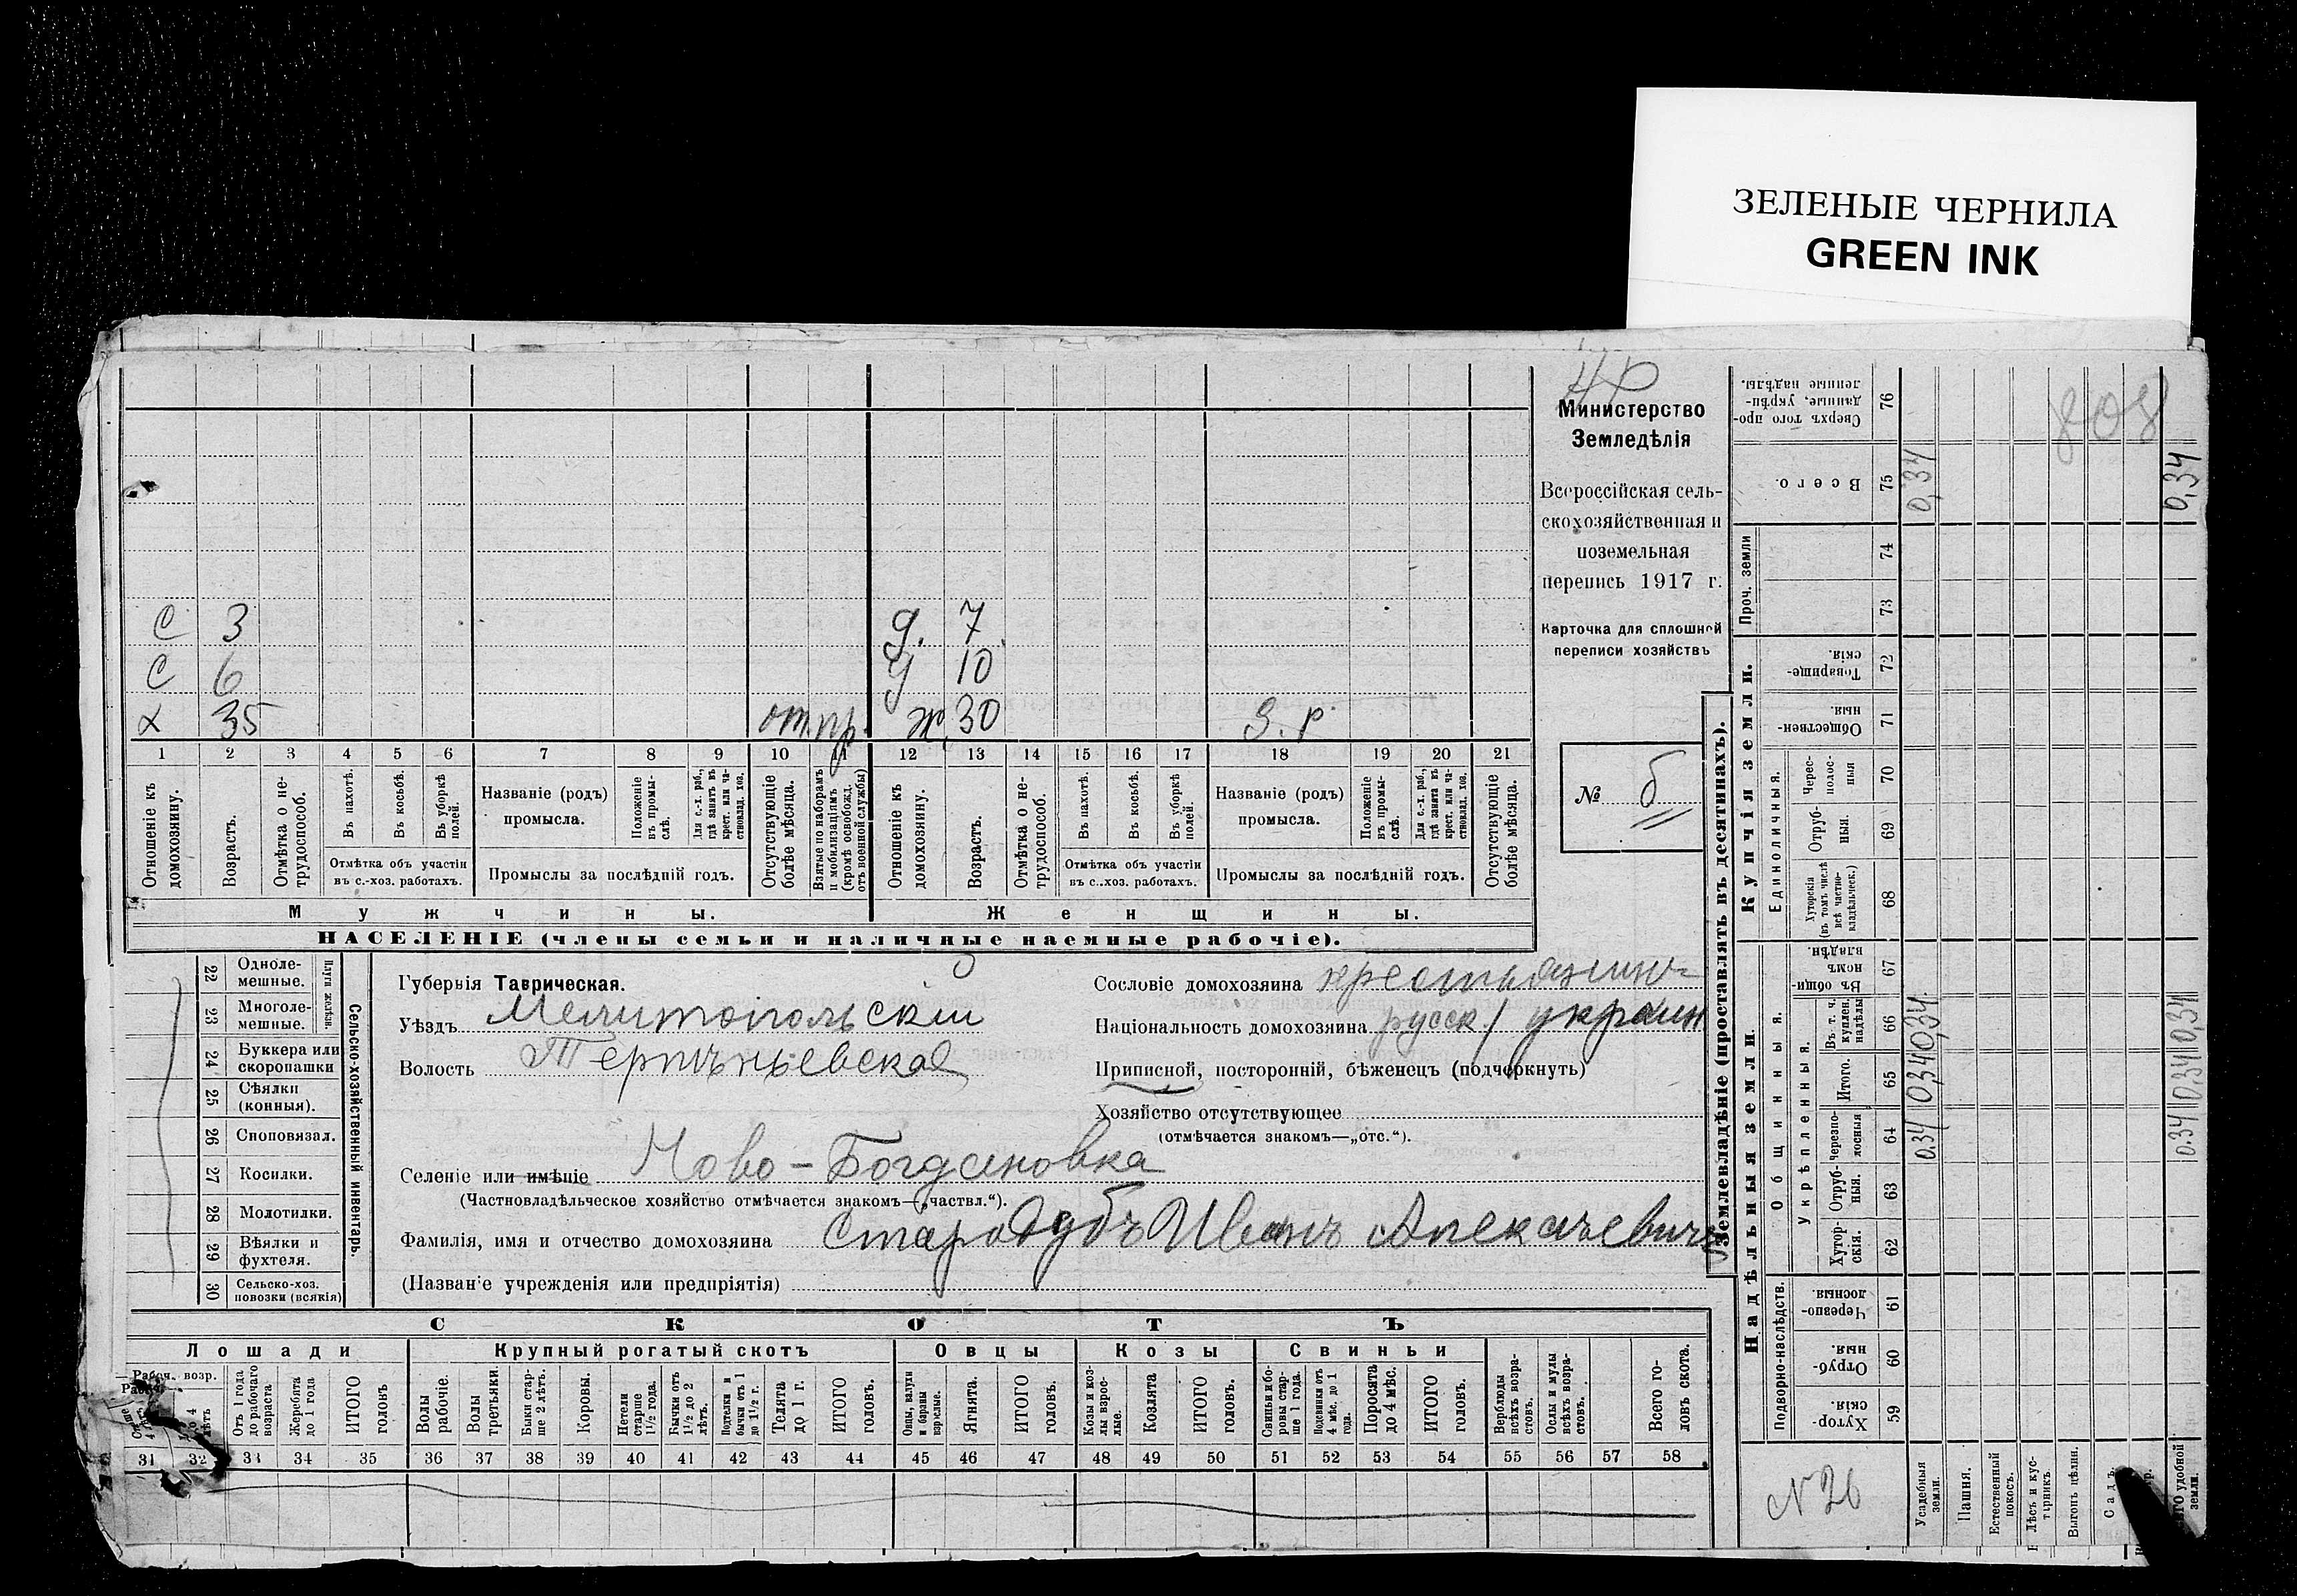 ЗЕЛЕНЫЕ ЧЕРНИЛА
GREEN INK
Министерство
Земледѣлія
Всероссійская сель-
скохозяйственная и
поземельная
перепись 1917 г.
Карточка для сплошной
переписи хозяйствъ
№ 6
С 3 д. 7
С 6 д 10
х 35 от.пр. ж. 30 З. р.
1 2 3 4 5 6 7 8 9 10 11 12 13 14 15 16 17 18 19 20 21
Отношеніе къ домохозяину.
Возрастъ.
Отмѣтка о не-трудоспособ.
Въ пахотѣ.
Въ косьбѣ.
Въ уборкѣ полей.
Отмѣтка объ участіи въ с.-хоз. работахъ.
Названіе (родъ) промысла.
Положеніе въ промы-слѣ.
Для с.-х. раб., гдѣ занятъ въ крест. или ча-ствовлад. хоз.
Промыслы за послѣдній годъ.
Отсутствующіе болѣе мѣсяца.
Взятые по наборамъ и мобилизаціямъ (кромѣ освобожд. отъ военной службы)
Отношеніе къ домохозяину.
Возрастъ.
Отмѣтка о не-трудоспособ.
Въ пахотѣ.
Въ косьбѣ.
Въ уборкѣ полей.
Отмѣтка объ участіи въ с.-хоз. работахъ.
Названіе (родъ) промысла.
Положеніе въ промы-слѣ.
Для с.-х. раб., гдѣ занята въ крест. или ча-ствовлад. хоз.
Промыслы за послѣдній годъ.
Отсутствующіе болѣе мѣсяца.
Мужчины. Женщины.
НАСЕЛЕНІЕ (члены семьи и наличные наемные рабочіе).
22 Одноле-мешные.
23 Многоле-мешные.
Плуги желѣзн.
24 Буккера или скоропашки
25 Сѣялки (конныя).
26 Сноповязал.
27 Косилки.
28 Молотилки.
29 Вѣялки и фухтеля.
30 Сельско-хоз. повозки (всякія)
Сельско-хозяйственный инвентарь.
Губернія Таврическая.
Уѣздъ Мелитопольскій
Волость Терпѣньевская
Селеніе или имѣніе Ново-Богдановка
(Частновладѣльческое хозяйство отмѣчается знакомъ—„частвл.“).
Фамилія, имя и отчество домохозяина Стародубъ Иванъ Алексѣевичъ
(Названіе учрежденія или предпріятія)
Сословіе домохозяина крестьянинъ
Національность домохозяина русск / украин
Приписной, посторонній, бѣженецъ (подчеркнуть)
Хозяйство отсутствующее
(отмѣчается знакомъ—„отс.“).
СКОТЪ
Лошади Крупный рогатый скотъ Овцы Козы Свиньи
Рабоч. возр.
Отъ 1 года до рабочаго возраста
Жеребята до 1 года
ИТОГО головъ
Волы рабочіе.
Волы третьяки.
Быки стар-ше 2 лѣтъ.
Коровы.
Нетели старше 1½ года.
Бычки отъ 1½ до 2 лѣтъ.
Подтелки и бычки отъ 1 до 1½ г.
Телята до 1 г.
ИТОГО головъ.
Овцы, валухи и бараны взрослые.
Ягнята.
ИТОГО головъ.
Козы и коз-лы взрос-лые.
Козлята
ИТОГО головъ.
Свиньи и бо-ровы стар-ше 1 года.
Подсвинки отъ 4 мѣс. до 1 года.
Поросята до 4 мѣс.
ИТОГО головъ.
Верблюды всѣхъ возра-стовъ.
Ослы и мулы всѣхъ возра-стовъ.
Всего го-ловъ скота.
31 32 33 34 35 36 37 38 39 40 41 42 43 44 45 46 47 48 49 50 51 52 53 54 55 56 57 58
Землевладѣніе (проставлять въ десятинахъ).
Купчія земли.
Надѣльныя земли.
Сверхъ того про-данные, укрѣп-ленные надѣлы. 76
Всего. 75 0,34 0,34
Проч. земли 74 73
Товарище-скія. 72
Обществен-ныя. 71
Единоличныя.
Черес-полос-ныя 70
Отруб-ныя. 69
Хуторскія (въ томъ числѣ всѣ частно-владѣльческ.) 68
Въ общи-номъ владѣн. 67
Общинныя.
Укрѣпленныя.
Въ т. ч. куплен. надѣлы 66 0,34 0,34
Итого. 65 0,34 0,34
Черезпо-лосныя 64 0,34 0,34
Отруб-ныя. 63
Хутор-скія. 62
Подворно-наслѣдств.
Черезпо-лосныя. 61
Отруб-ныя. 60
Хутор-скія. 59
N 26
Усадебныя земли.
Пашня.
Естественный покосъ.
Лѣсъ и кус-тарникъ.
Выгонъ цѣлин.
Садъ.
удобной земли.